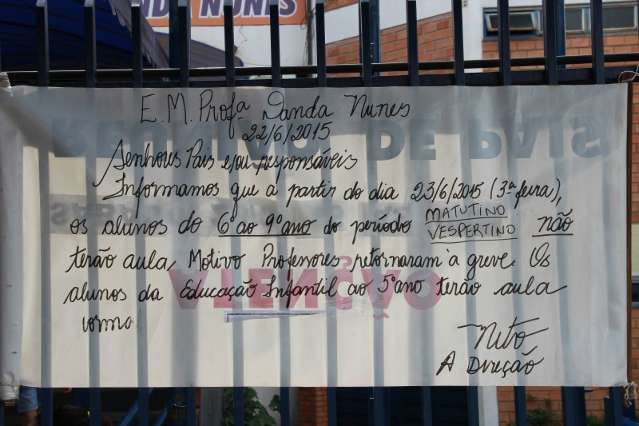 NDA NUNES
E.M. Profª Danda Nunes
22/6/2015
Senhores Pais e/ou responsáveis
Informamos que a partir do dia 23/6/2015 (3ª feira),
os alunos do 6º ao 9º ano do período MATUTINO
VESPERTINO não
terão aula, Motivo Professores retornaram à greve. Os
alunos da Educação Infantil ao 5º ano terão aula
Nito
A DIREÇÃO